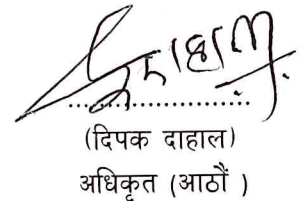 ....................
(दिपक दाहाल)
अधिकृत (आठौं )